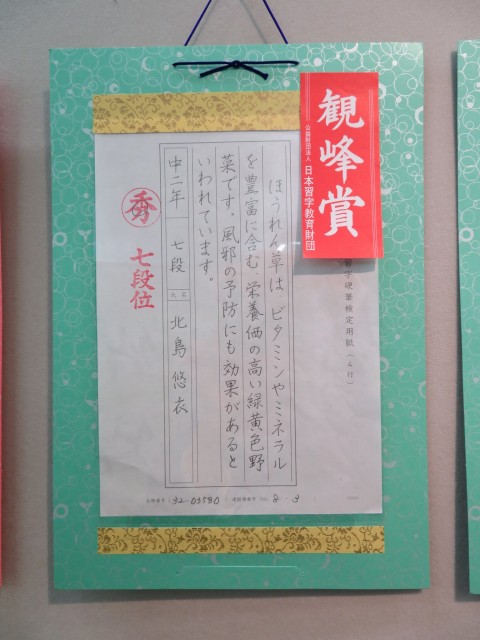 観峰賞
公益財団法人 日本習字教育財団
習字硬筆検定用紙(4行)
ほうれん草は、ビタミンやミネラル
を豊富に含む、栄養価の高い緑黄色野
菜です。風邪の予防にも効果があると
いわれています。
中二年 七段 氏名 北島悠衣
秀 七段位
会員番号 32-03580 8-3